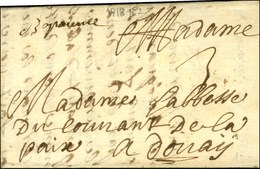 Bapaume
Madame
3
Madame Labbesse
Du Couuant De la
paix a douaÿ